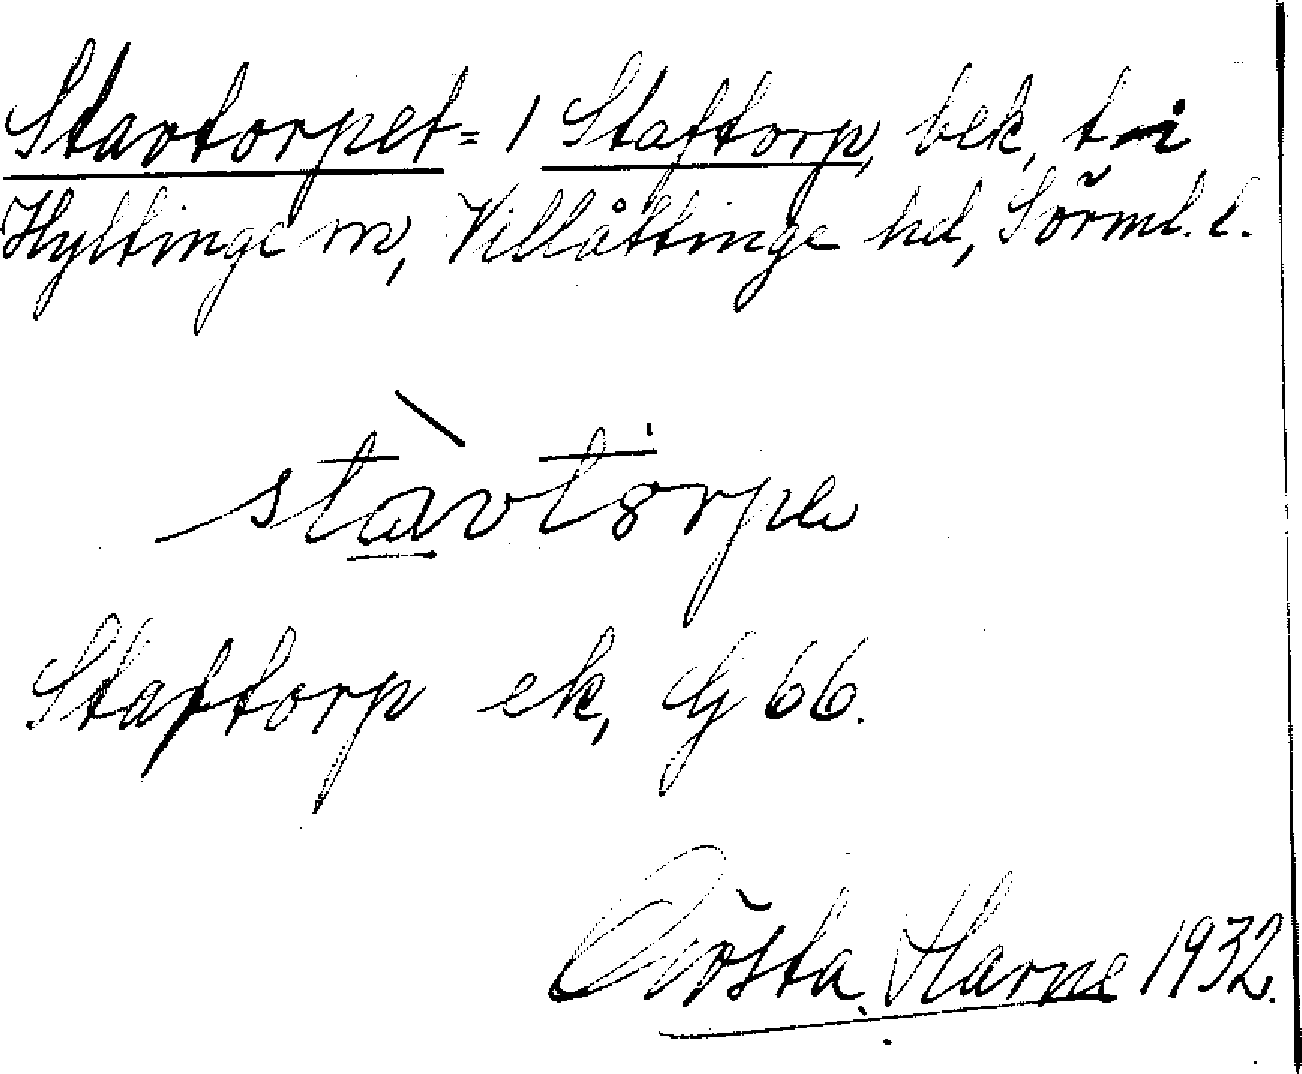 Stavtorpet = 1 Staftorp, bek, t i
Hyltinge sn, Villåttinge hd, Sörml. l.
stavtorpe
Staftorp ek, Gj 66.
Gösta Harne 1932.